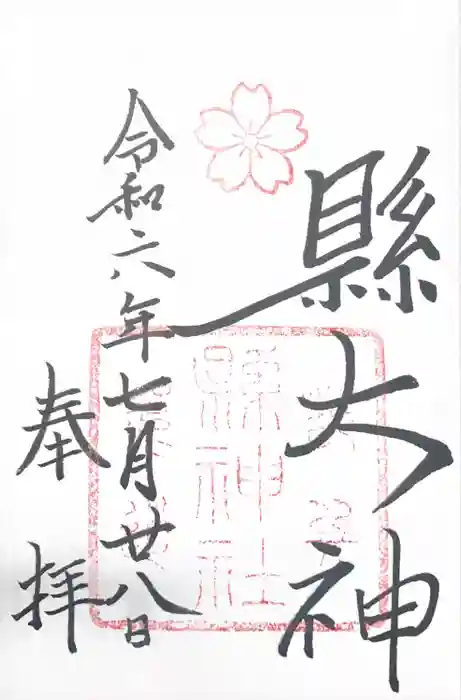 縣大神
令和六年七月廿八日
奉拝